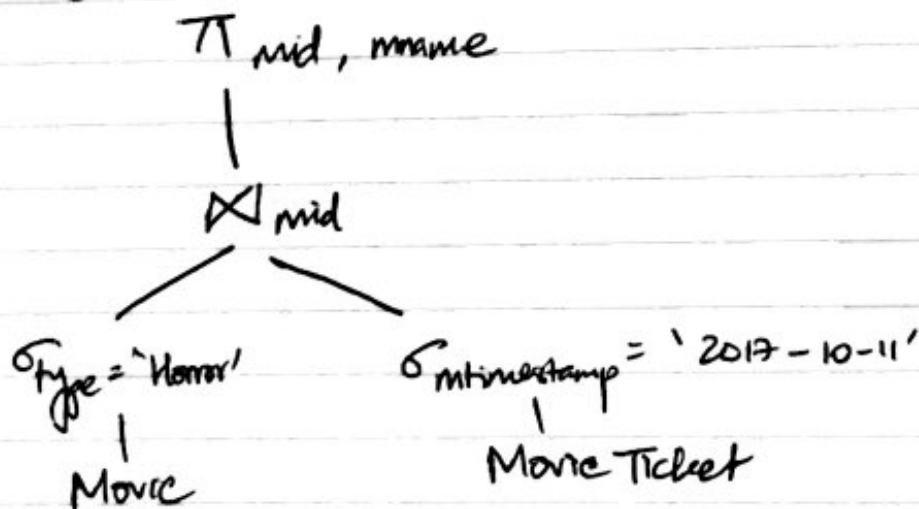 π mid, mname
⋈ mid
σ type = 'Horror' σ mtimestamp = '2017-10-11'
Movie Movie Ticket